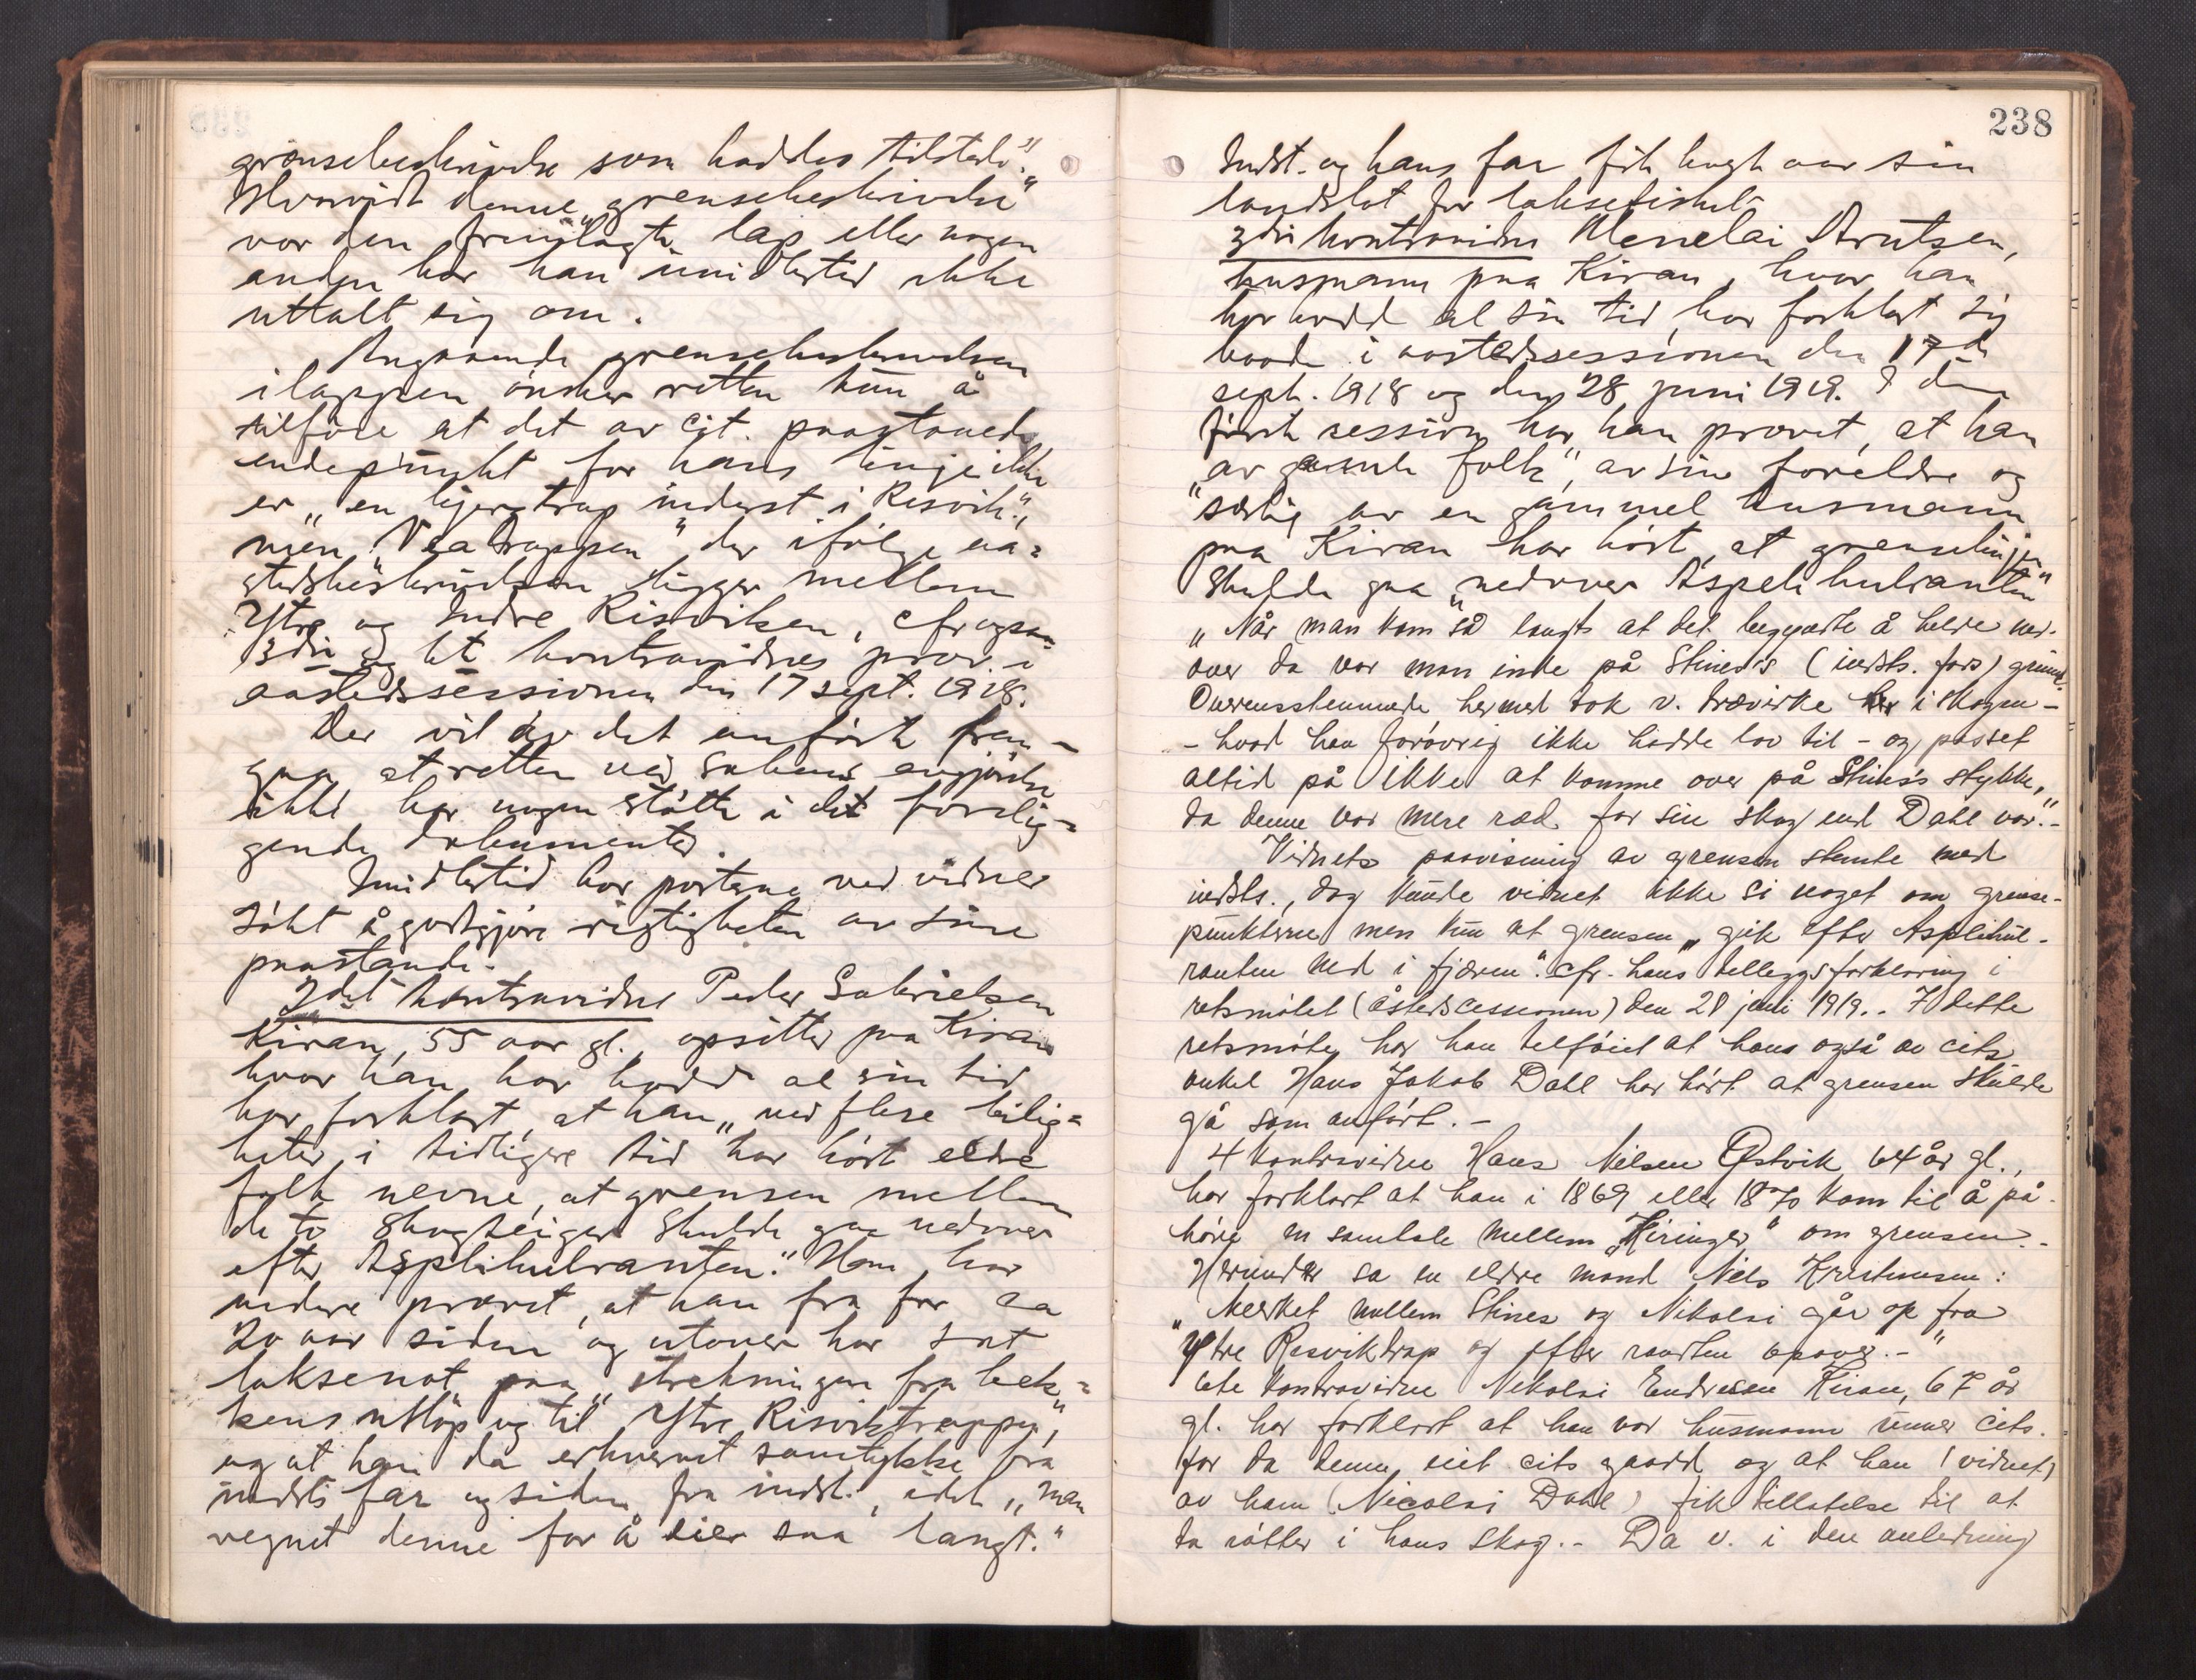 grænsebeskrivelse som haddes tilstede".
Hvorvidt denne "grensebeskrivelse"
var den fremlagte lap eller nogen
anden har han imidlertid ikke
uttalt sig om.
Angaaende grensebeskrivelsen
i lappen ønsker retten kun å
tilføre at det av cit. paastaaede
endepunkt for hans linje ikke
er "en bjergtrap inderst i Risvik",
men "Veatrappen" der ifølge aa=
stedsbeskrivelsen ligger mellem
Ytre og Indre Risviken, cfr ogsaa
3die og 6te kontravidnes prov i
aastedssessionen den 17 sept. 1918.
Der vil av det anførte frem-
gaa, at retten ved sakens avgjørelse
ikke har nogen støtte i det forelig=
gende dokumenter.
Imidlertid har parterne ved vidner
søkt å godtgjøre rigtigheten av sine
paastande.
2det kontravidne Peder Gabrielsen
Kiran, 55 aar gl., opsitter paa Kiran
hvor han har bodd al sin tid
har forklart, at han "ved flere leilig=
heter i tidligere tid har hørt eldre
folk nevne, at grensen mellem
de to skogteiger skulde gaa nedover
efter Asplihulranten." Han har
videre provet, at han fra for ca
20 aar siden og utover har sat
laksenot paa "strekningen fra bek=
kens utløp og til Ytre Risviktrappen",
og at han da erhvervet samtykke fra
indst.s far og siden fra indst., idet "man
regnet denne for å eier saa langt."
238
Indst. og hans far fik hvert aar sin
landslot for laksefisket.
3die kontravidne Menelai Arntsen,
husmann paa Kiran, hvor han
har bodd al sin tid, har forklart sig
baade i aastedssessionen den 17de
sept. 1918 og den 28 juni 1919. I den
første session har han provet, at han
"av gamle folk", av sine foreldre og
"særlig av en gammel husmann
paa Kiran har hørt, at grenselinjen
skulde gaa "nedover Aspelihulranten"
"Når man kom så langt at det begynte å helde ned-
over da var man inde på Stines's (indsts. fars) grund.
Overensstemmende hermed tok v. trævirke her i skogen -
- hvad han forøvrig ikke hadde lov til - og passet
altid på ikke at komme over på Stines's stykke,
da denne var mere ræd for sin skog end Dahl var." -
Vidnets paavisning av grensen stemte med
indsts., dog kunde vidnet ikke si noget om grense-
punkterne men kun at grensen "gik efter Asplihul-
ranten ned i fjæren". cfr. hans tilleggsforklaring i
retsmøtet (åstedscessionen) den 28 juni 1919.. I dette
retsmøte har han tilføiet at hans også av cits
onkel Hans Jakob Dahl har hørt at grensen skulde
gå som anført. -
4 kontravidne Hans Nilsen Østvik 64 år gl.,
har forklart at han i 1869 eller 1870 kom til å på-
høre en samtale mellem "Kiringer" om grensen. -
Herunder sa en eldre mand Nels Kristensen:
"Merket mellem Stines og Nikolai går op fra
Ytre Risviktrap og efter ranten opover. -"
6te kontravidne Nikolai Endresen Kiran, 67 år
gl. har forklart at han var husmann under cits.
far da denne eiet cits gaard og at han (vidnet)
av ham (Nicolai Dahl) fik tillatelse til at
ta røtter i hans skog. - Da v. i den anledning